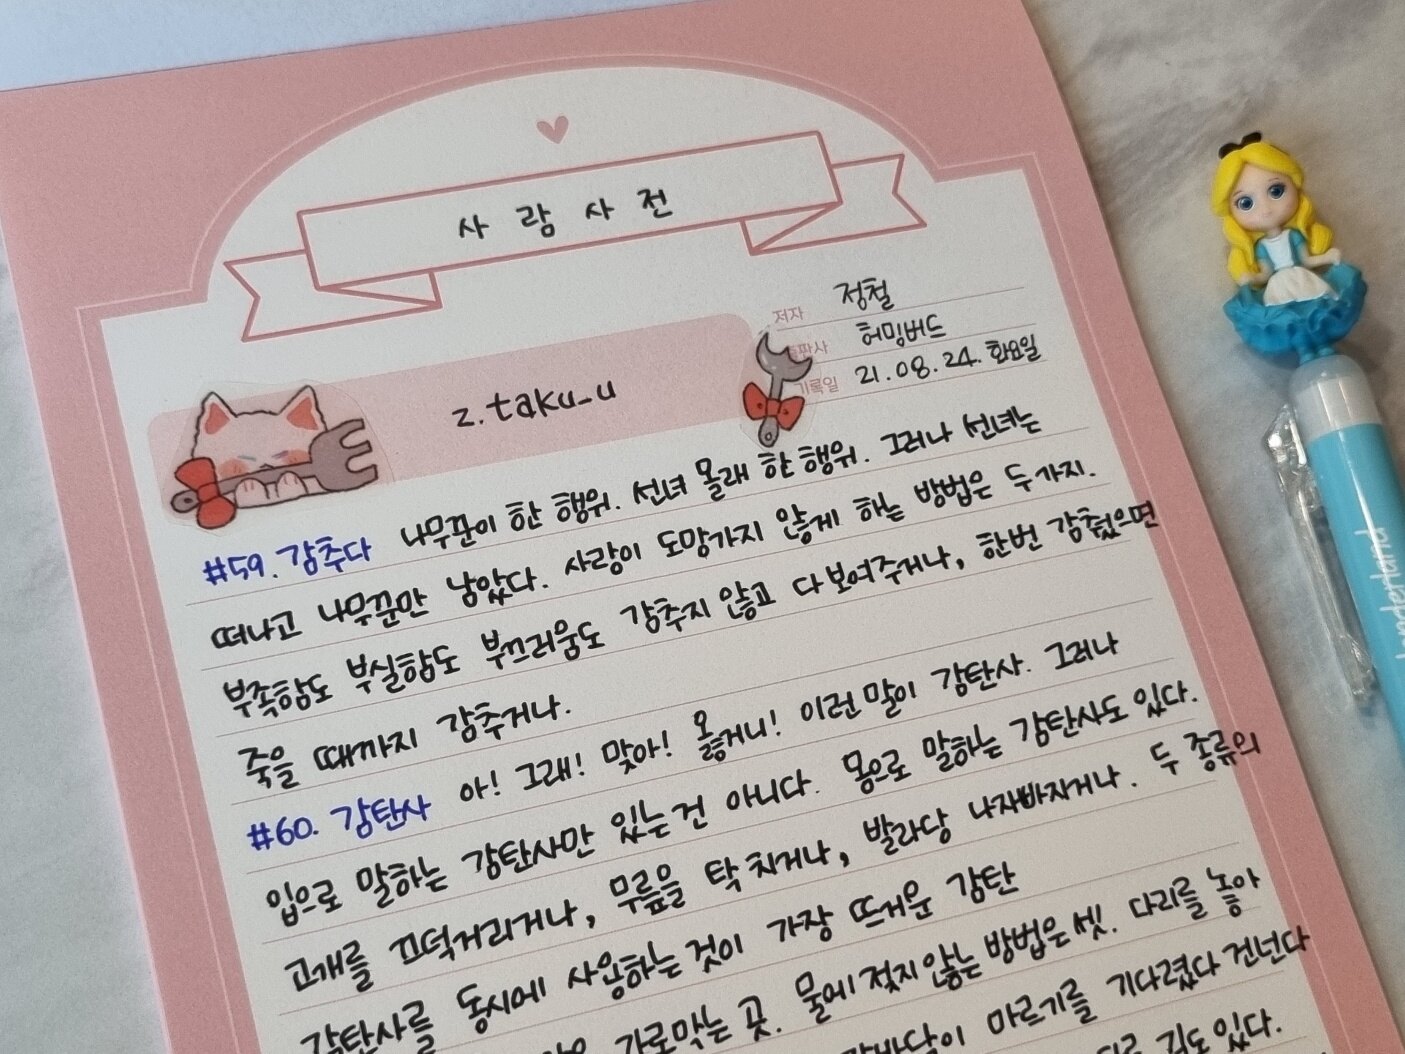 사람사전
저자 정철
출판사 허밍버드
기록일 21.08.24. 화요일
z.taku_u
#59. 감추다 나무꾼이 한 행위. 선녀 몰래 한 행위. 그러나 선녀는
떠나고 나무꾼만 남았다. 사랑이 도망가지 않게 하는 방법은 두 가지.
부족함도 부실함도 부끄러움도 감추지 않고 다 보여주거나, 한번 감췄으면
죽을 때까지 감추거나.
#60. 감탄사 아! 그래! 맞아! 옳거니! 이런 말이 감탄사. 그러나
입으로 말하는 감탄사만 있는 건 아니다. 몸으로 말하는 감탄사도 있다.
고개를 끄덕거리거나, 무릎을 탁 치거나, 발라당 나자빠지거나. 두 종류의
감탄사를 동시에 사용하는 것이 가장 뜨거운 감탄
가로막는 곳. 물에 젖지 않는 방법은 셋. 다리를 놓아
마르기를 기다렸다 건넌다
길도 있다.